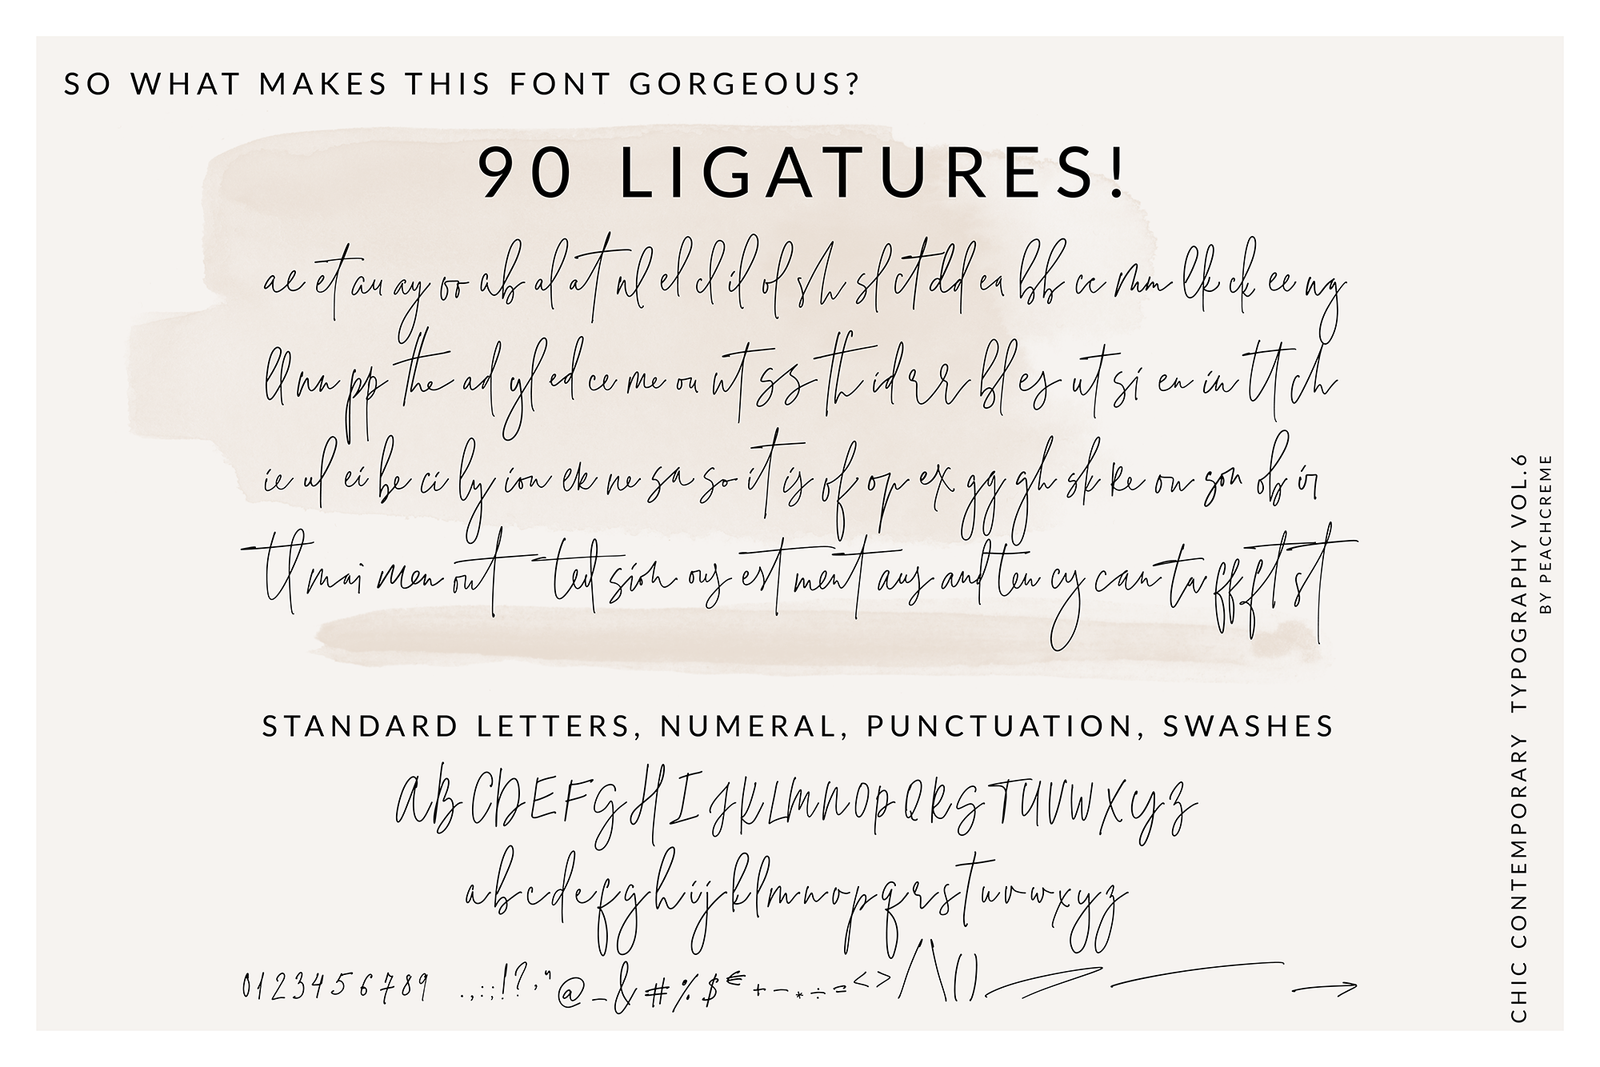 SO WHAT MAKES THIS FONT GORGEOUS?
90 LIGATURES!
ae et au ay oo ab al at nl el cl il ol sh sl ct dd ea bb cc mm lk ck ee ng
ll nn pp the ad yl ed ce me ou nt ss th id rr bl es ut si en in tt ch
ie ul ei be ci ly ion ek ne sa so it is of op ex gg gh sk ke on son ob ir
tl mai men out ted sion ous est ment aus and ten cy can ta ff ft st
STANDARD LETTERS, NUMERAL, PUNCTUATION, SWASHES
ABCDEFGHIJKLMNOPQRSTUVWXYZ
abcdefghijklmnopqrstuvwxyz
0123456789 .,:;!?,"@_&#%$€+-*÷=<>/\()
CHIC CONTEMPORARY TYPOGRAPHY VOL.6
BY PEACHCREME